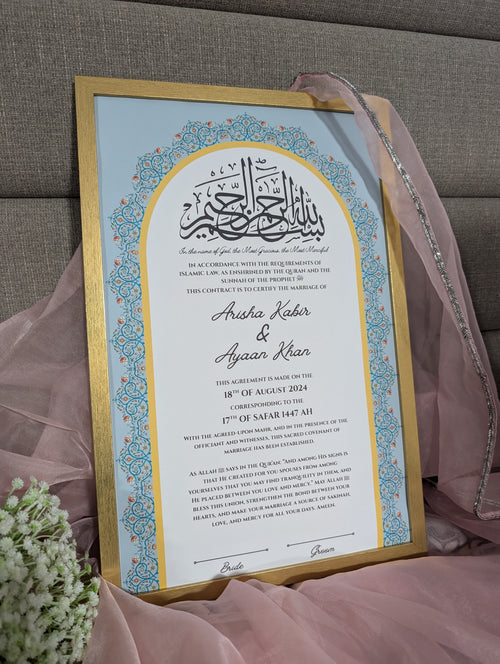 بسم الله الرحمن الرحيم
In the name of God, the Most Gracious, the Most Merciful
IN ACCORDANCE WITH THE REQUIREMENTS OF
ISLAMIC LAW, AS ENSHRINED BY THE QURAN AND THE
SUNNAH OF THE PROPHET ﷺ
THIS CONTRACT IS TO CERTIFY THE MARRIAGE OF
Arisha Kabir
&
Ayaan Khan
THIS AGREEMENT IS MADE ON THE
18TH OF AUGUST 2024
CORRESPONDING TO THE
17TH OF SAFAR 1447 AH
WITH THE AGREED-UPON MAHR, AND IN THE PRESENCE OF THE
OFFICIANT AND WITNESSES, THIS SACRED COVENANT OF
MARRIAGE HAS BEEN ESTABLISHED.
AS ALLAH ﷻ SAYS IN THE QUR'AN: "AND AMONG HIS SIGNS IS
THAT HE CREATED FOR YOU SPOUSES FROM AMONG
YOURSELVES THAT YOU MAY FIND TRANQUILITY IN THEM, AND
HE PLACED BETWEEN YOU LOVE AND MERCY." MAY ALLAH ﷻ
BLESS THIS UNION, STRENGTHEN THE BOND BETWEEN YOUR
HEARTS, AND MAKE YOUR MARRIAGE A SOURCE OF SAKINAH,
LOVE, AND MERCY FOR ALL YOUR DAYS. AMEEN.
Bride Groom